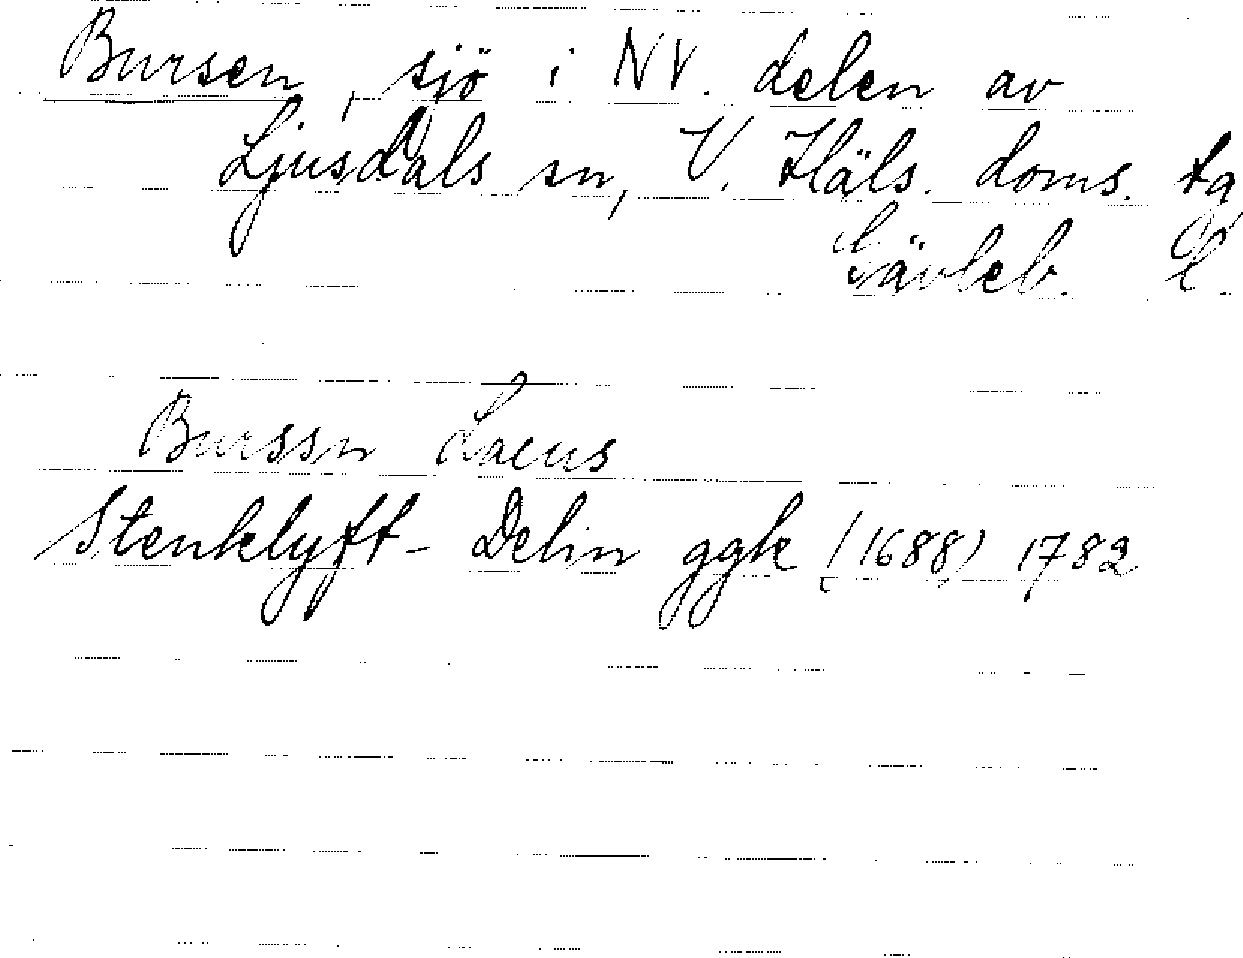 Bursen, sjö i NV. delen av
Ljusdals sn, V. Häls. doms. tg
Gävleb. L.
Burssn Lacus
Stenklyft- Delin ggk (1688) 1782